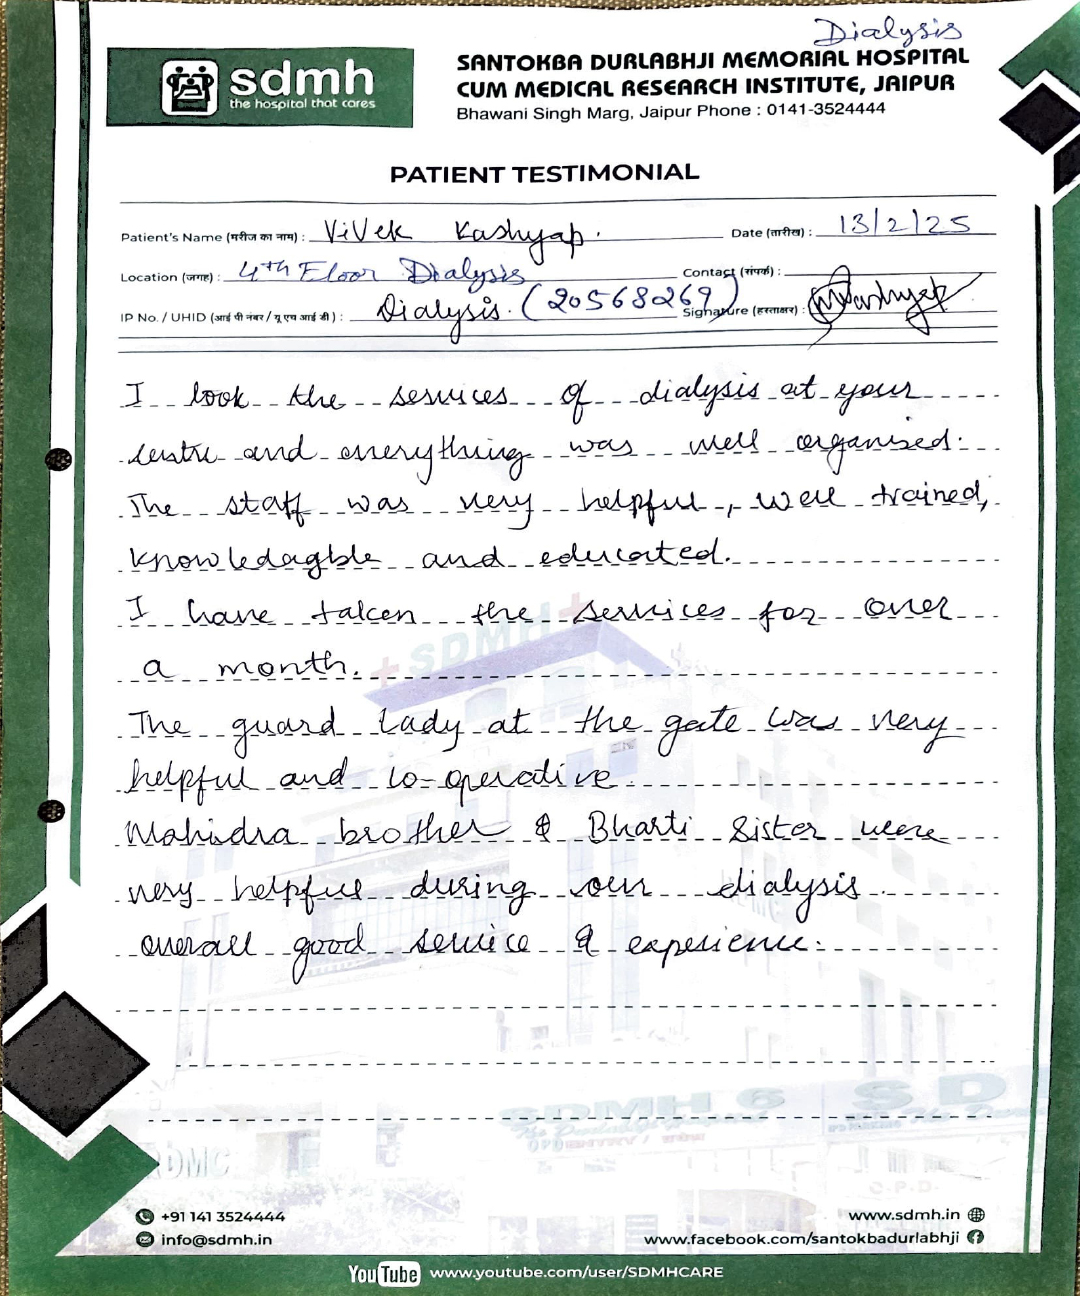 Dialysis
sdmh
the hospital that cares
SANTOKBA DURLABHJI MEMORIAL HOSPITAL
CUM MEDICAL RESEARCH INSTITUTE, JAIPUR
Bhawani Singh Marg, Jaipur Phone : 0141-3524444
PATIENT TESTIMONIAL
Patient's Name (मरीज का नाम) : ViVek Kashyap. Date (तारीख) : 13/2/25
Location (जगह) : 4th Floor Dialysis Contact (संपर्क) :
IP No. / UHID (आई पी नंबर / यू एच आई डी ) : Dialysis. (20568269) Signature (हस्ताक्षर) : Kashyap
I took the services of dialysis at your
centre and everything was well organised.
The staff was very helpful, well trained,
knowledagble and educated.
I have taken the services for over
a month.
The guard lady at the gate was very
helpful and co-operative
Mahidra brother & Bharti Sister were
very helpful during our dialysis
overall good service & experience.
SDMH
SDMH 6
SD
OPD ENTRY
DMC
O-P-D-
+91 141 3524444
www.sdmh.in
info@sdmh.in
www.facebook.com/santokbadurlabhji
YouTube www.youtube.com/user/SDMHCARE